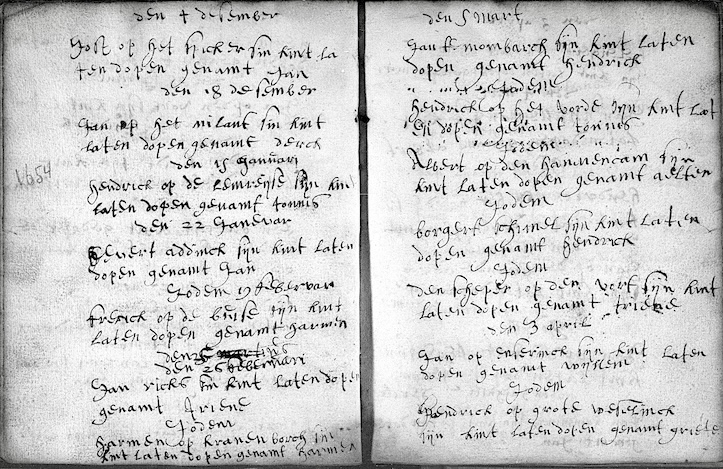 den 4 desember
Jost op het hickers sin kint la
ten dopen genamt Jan
den 18 desember
Jan op het nilant sin kint
laten dopen genamt derck
den 15 Januari
1654
hendrick op de sijn kint
laten dopen genamt tonnis
den 22 Janevar
Gevert addinck sijn kint laten
dopen genamt Jan
Jodem 19 febervari
frerick op de buise sijn kint
laten dopen genamt harmen
den 26 febervari
Jan ricks sin kint laten dopen
genamt triene
Jodem
harmen op kranen borch sin
kint laten dopen genamt harmen
den 5 mart
Jan mombarch sijn kint laten
dopen genamt hendrick
Jodem
hendrick op het vorde sijn kint lat
en dopen genamt tonnis
Jodem
Albert op den sijn
kint laten dopen genamt aelten
Jodem
borgert sijn kint laten
dopen genamt hendrick
Jodem
den scheper op den vort sijn kint
laten dopen genamt triene
den 3 april
Jan op enserinck sijn kint laten
dopen genamt wyssem
Jodem
hendrick op grote weschinck
sijn kint laten dopen genamt griete